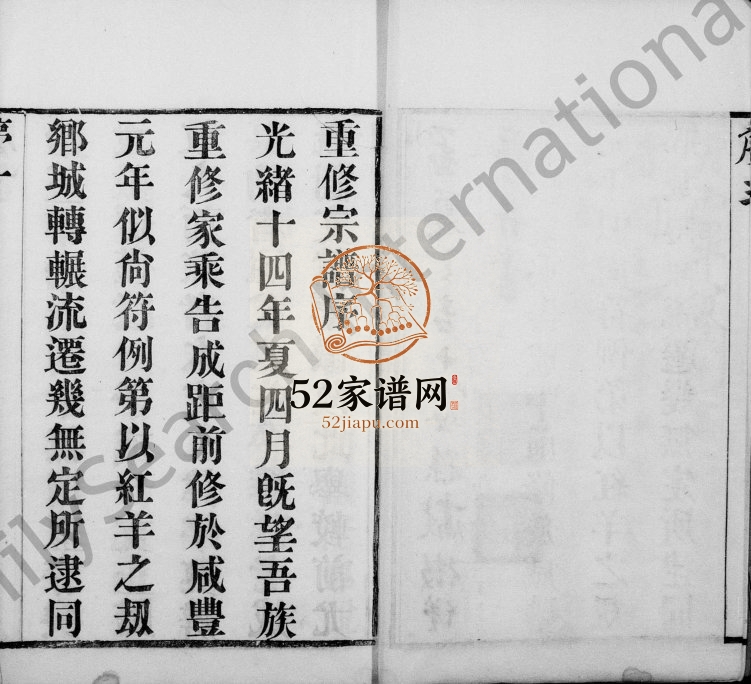 重修宗譜序
光緒十四年夏四月旣望吾族
重修家乘告成距前修於咸豐
元年似尙符例第以紅羊之刼
鄉城轉輾流遷幾無定所逮同
序一
52家谱网
52jiapu.com
FamilySearch International